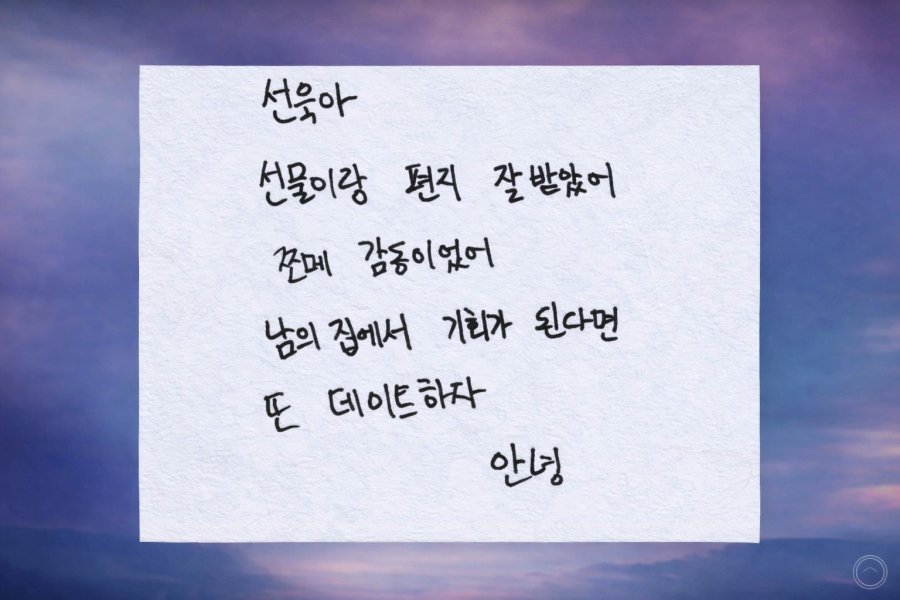 선욱아
선물이랑 편지 잘 받았어
쪼메 감동이었어
남의 집에서 기회가 된다면
또 데이트하자
안녕